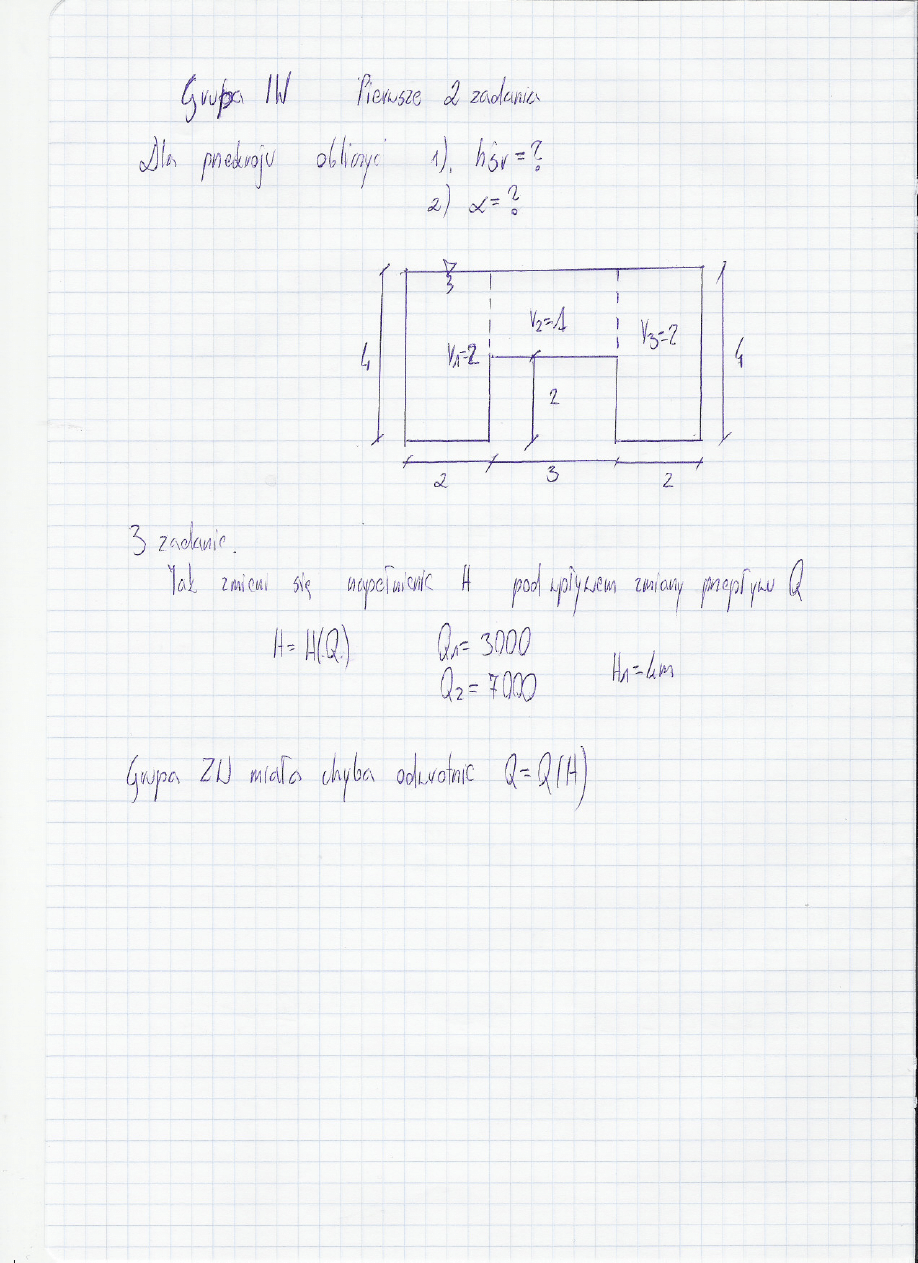 Grupa IW Pierwsze 2 zadania
Dla przekroju obliczyć 1). hśr=?
2) α=?
3
V2=1
V1=2
V3=2
4
4
2
2
3
2
3 zadanie.
Jak zmieni się napełnienie H pod wpływem zmiany przepływu Q
H=H(Q) Q1=3000
Q2=7000
H1=4m
Grupa ZW miała chyba odwrotnie Q=Q(H)